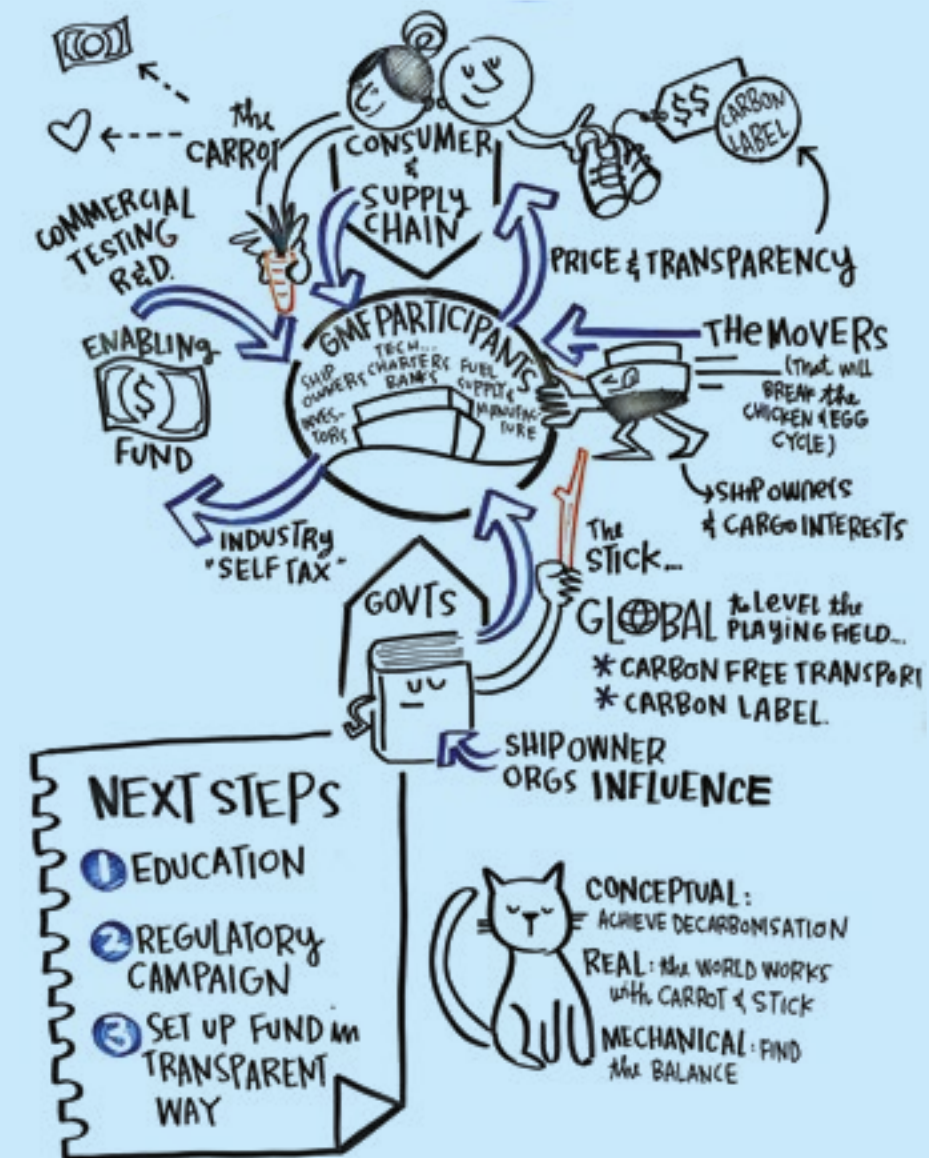 the
CARROT
CONSUMER
&
SUPPLY
CHAIN
$$
CARBON
LABEL
COMMERCIAL
TESTING
R&D.
PRICE & TRANSPARENCY
ENABLING
$
FUND
GMF PARTICIPANTS
SHIP
OWNERS
TECH...
CHARTERS
BANKS
FUEL
SUPPLY &
MANUFAC-
TURE
INVES-
TORS
THE MOVERS
(that will
BREAK the
CHICKEN & EGG
CYCLE)
SHIP OWNERS
& CARGO INTERESTS
INDUSTRY
"SELF TAX"
The
STICK...
GOVTS
GLOBAL to LEVEL the
PLAYING FIELD...
* CARBON FREE TRANSPORT
* CARBON LABEL.
SHIP OWNER
ORGS INFLUENCE
NEXT STEPS
1 EDUCATION
2 REGULATORY
CAMPAIGN
3 SET UP FUND in
TRANSPARENT
WAY
CONCEPTUAL:
ACHIEVE DECARBONISATION
REAL: the WORLD WORKS
with CARROT & STICK
MECHANICAL: FIND
the BALANCE